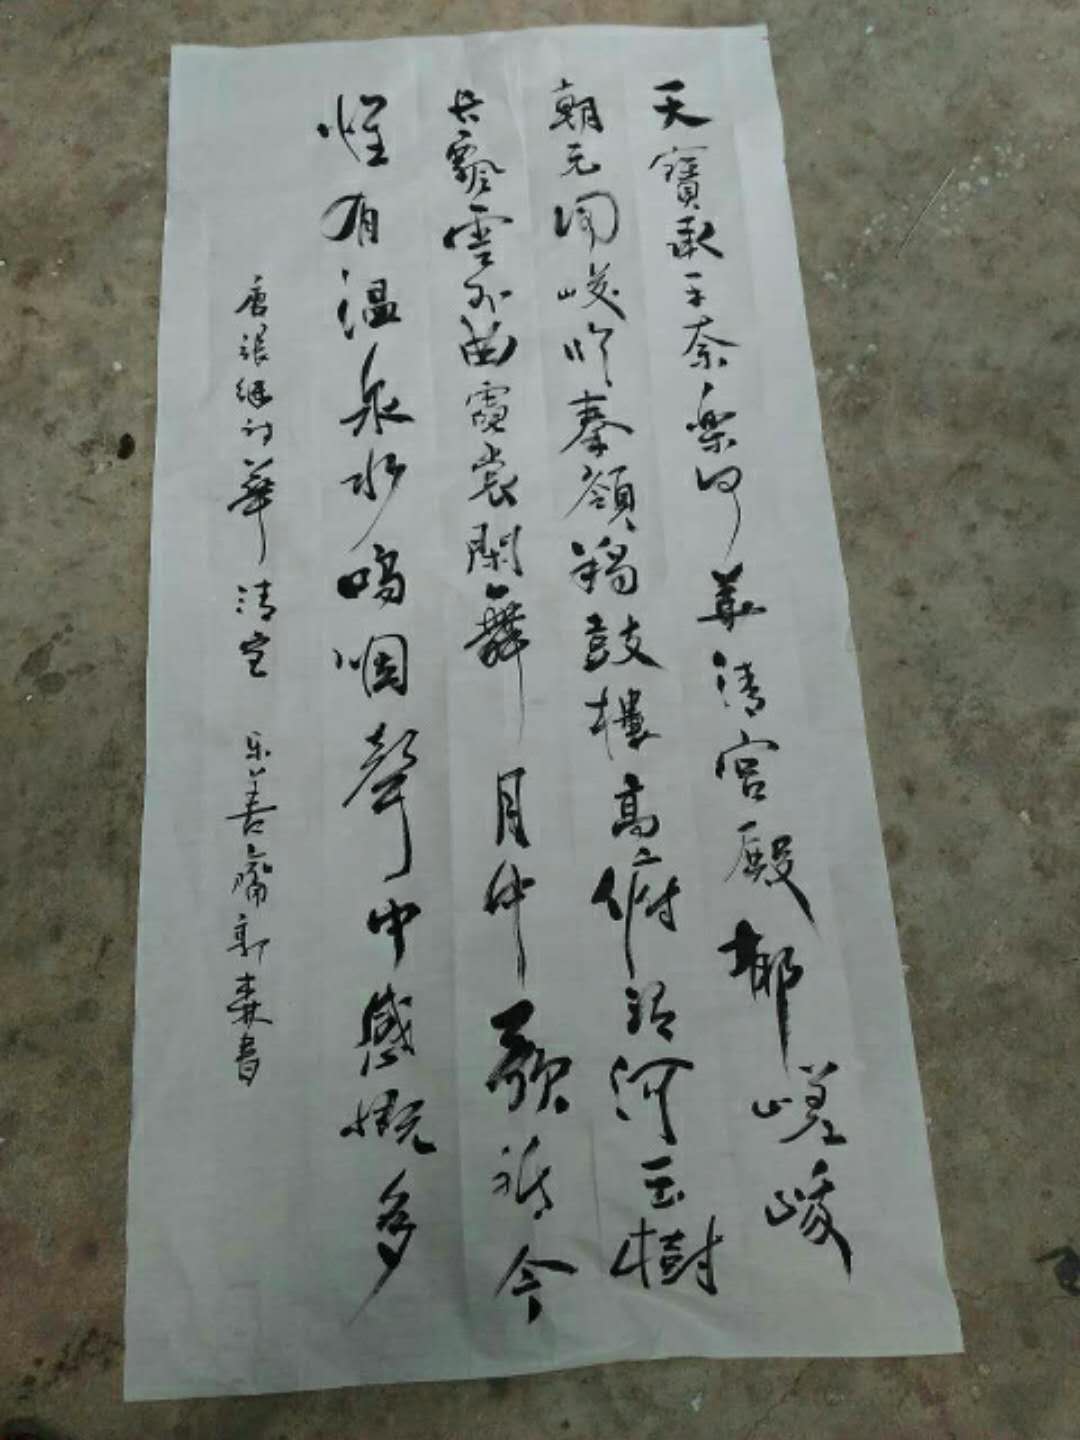 天寶承平奈樂何華清宮殿鬱嵯峨
朝元閣峻臨秦嶺羯鼓樓高俯渭河玉樹
長飄雲外曲霓裳閑舞月中歌祗今
惟有溫泉水嗚咽聲中感慨多
唐張繼詩華清宮 乐善齋郭森書